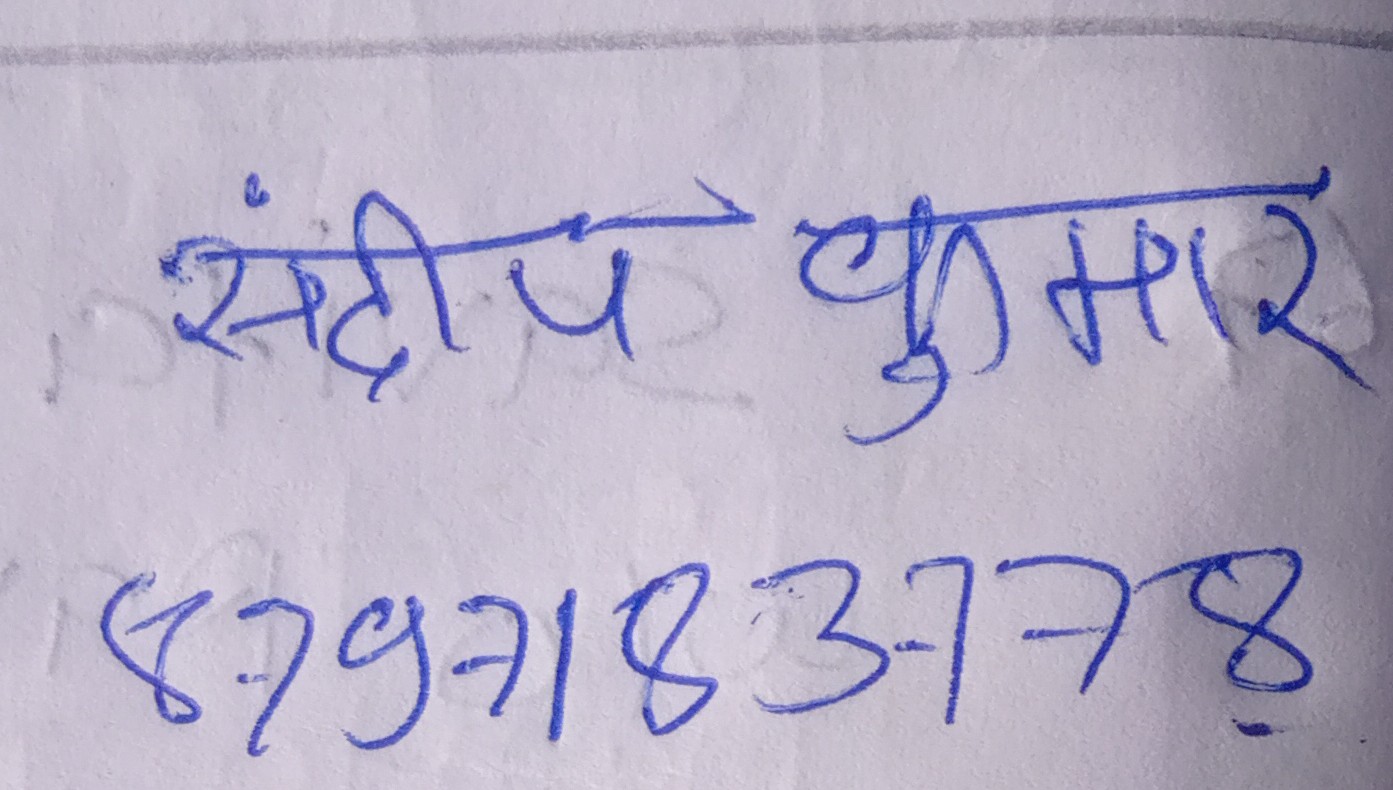 संदीप कुमार
8797183778